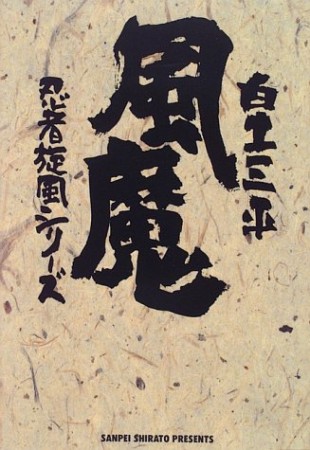 白土三平
風魔
忍者旋風シリーズ
SANPEI SHIRATO PRESENTS